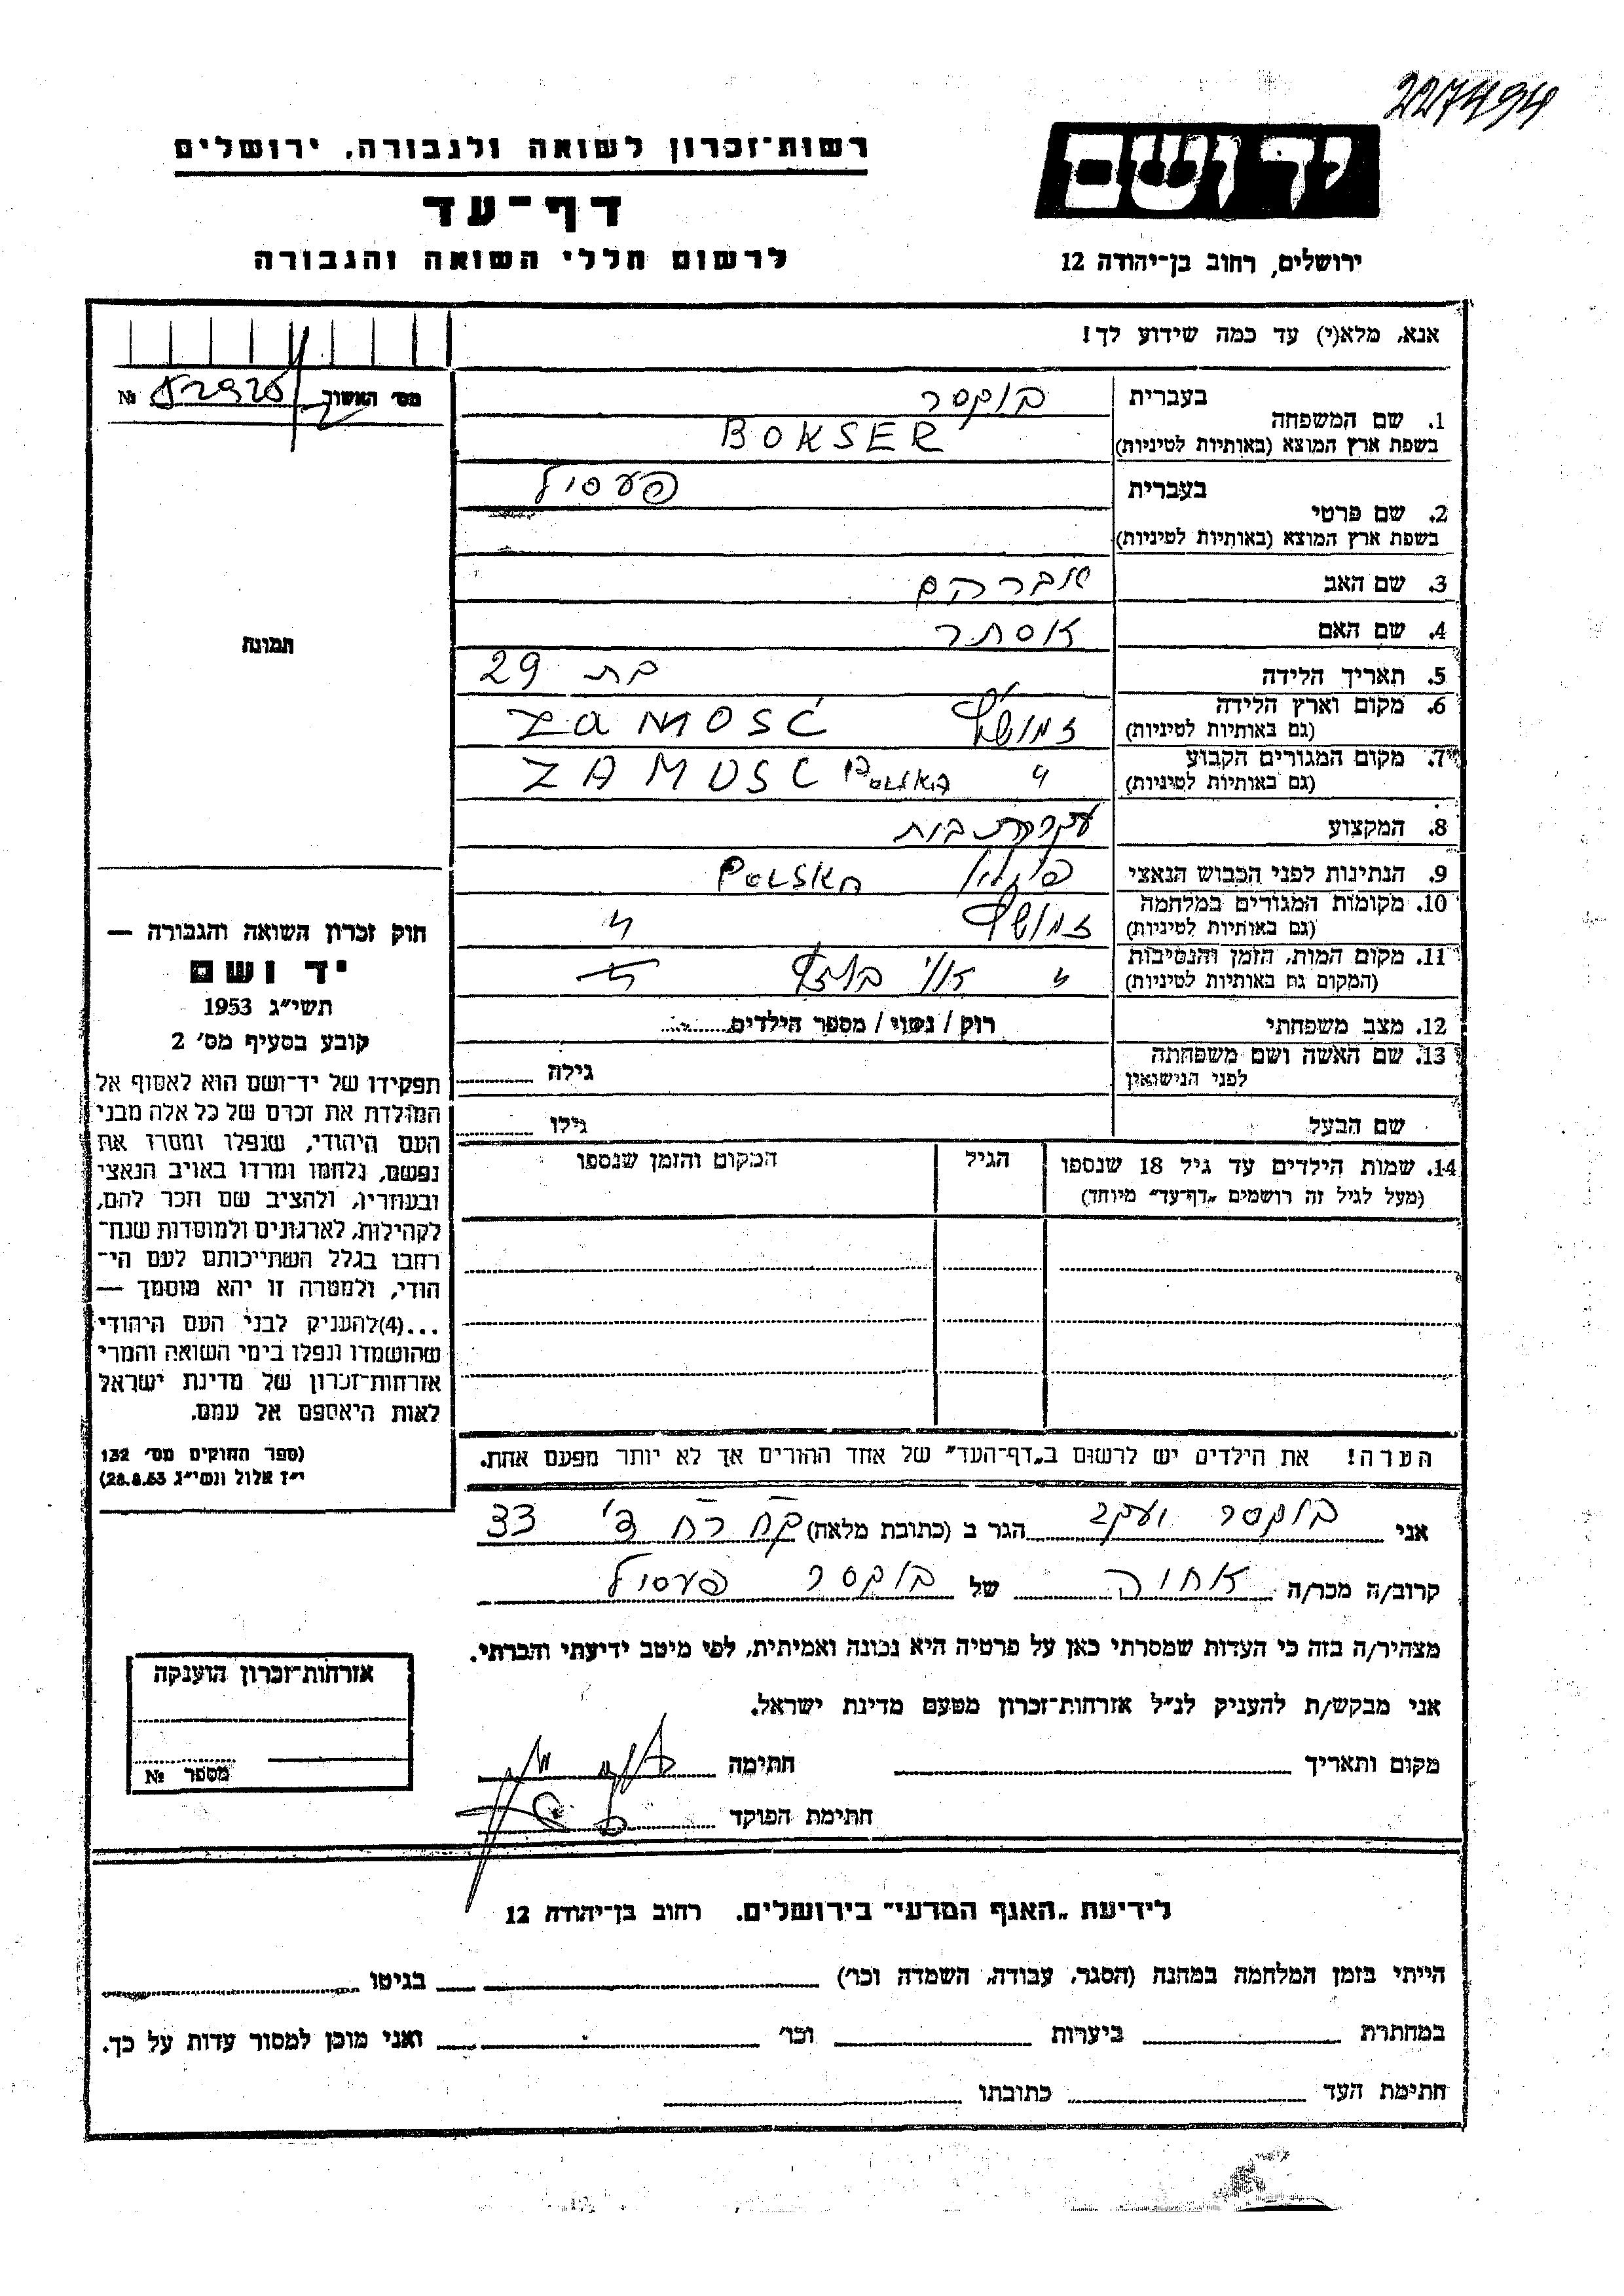 227494
יד ושם
רשות־זכרון לשואה ולגבורה, ירושלים
דף־עד
לרשום חללי השואה והגבורה
ירושלים, רחוב בן־יהודה 12
אנא, מלא(י) עד כמה שידוע לך!
מס׳ האשור № 52925
1. שם המשפחה בעברית בוקסר
בשפת ארץ המוצא (באותיות לטיניות) BOKSER
2. שם פרטי בעברית פעסיל
בשפת ארץ המוצא (באותיות לטיניות)
3. שם האב אברהם
4. שם האם אסתר
5. תאריך הלידה בת 29
6. מקום וארץ הלידה זמושץ ZAMOSC
(גם באותיות לטיניות)
7. מקום המגורים הקבוע " ZAMOSC
(גם באותיות לטיניות)
8. המקצוע עקרת בית
9. הנתינות לפני הכבוש הנאצי פולין
10. מקומות המגורים במלחמה זמושץ "
(גם באותיות לטיניות)
11. מקום המות, הזמן והנסיבות "
(המקום גם באותיות לטיניות)
12. מצב משפחתי רוק / נשוי / מספר הילדים
13. שם האשה ושם משפחתה
לפני הנישואין גילה
שם הבעל גילו
14. שמות הילדים עד גיל 18 שנספו הגיל המקום והזמן שנספו
(מעל לגיל זה רושמים „דף־עד" מיוחד)
הערה! את הילדים יש לרשום ב„דף־העד" של אחד ההורים אך לא יותר מפעם אחת.
תמונה
חוק זכרון השואה והגבורה —
יד ושם
תשי״ג 1953
קובע בסעיף מס׳ 2
תפקידו של יד־ושם הוא לאסוף אל
המולדת את זכרם של כל אלה מבני
העם היהודי, שנפלו ומסרו את
נפשם, נלחמו ומרדו באויב הנאצי
ובעוזריו, ולהציב שם וזכר להם,
לקהילות, לארגונים ולמוסדות שנח־
רבו בגלל השתייכותם לעם הי־
הודי, ולמטרה זו יהא מוסמך —
...(4)להעניק לבני העם היהודי
שהושמדו ונפלו בימי השואה והמרי
אזרחות־זכרון של מדינת ישראל
לאות היאספם אל עמם.
(ספר החוקים מס׳ 132
י״ז אלול תשי״ג 28.8.53)
אני בוקסר יעקב הגר ב (כתובת מלאה) 33
קרוב/ה מכר/ה אחיה של בוקסר פעסיל
מצהיר/ה בזה כי העדות שמסרתי כאן על פרטיה היא נכונה ואמיתית, לפי מיטב ידיעתי והכרתי.
אני מבקש/ת להעניק לנ״ל אזרחות־זכרון מטעם מדינת ישראל.
מקום ותאריך חתימה
חתימת הפוקד
אזרחות־זכרון הוענקה
מספר №
לידיעת „האגף המדעי" בירושלים. רחוב בן־יהודה 12
הייתי בזמן המלחמה במחנה (הסגר, עבודה, השמדה וכו׳) בגיטו
במחתרת ביערות וכו׳ ואני מוכן למסור עדות על כך.
חתימת העד כתובתו